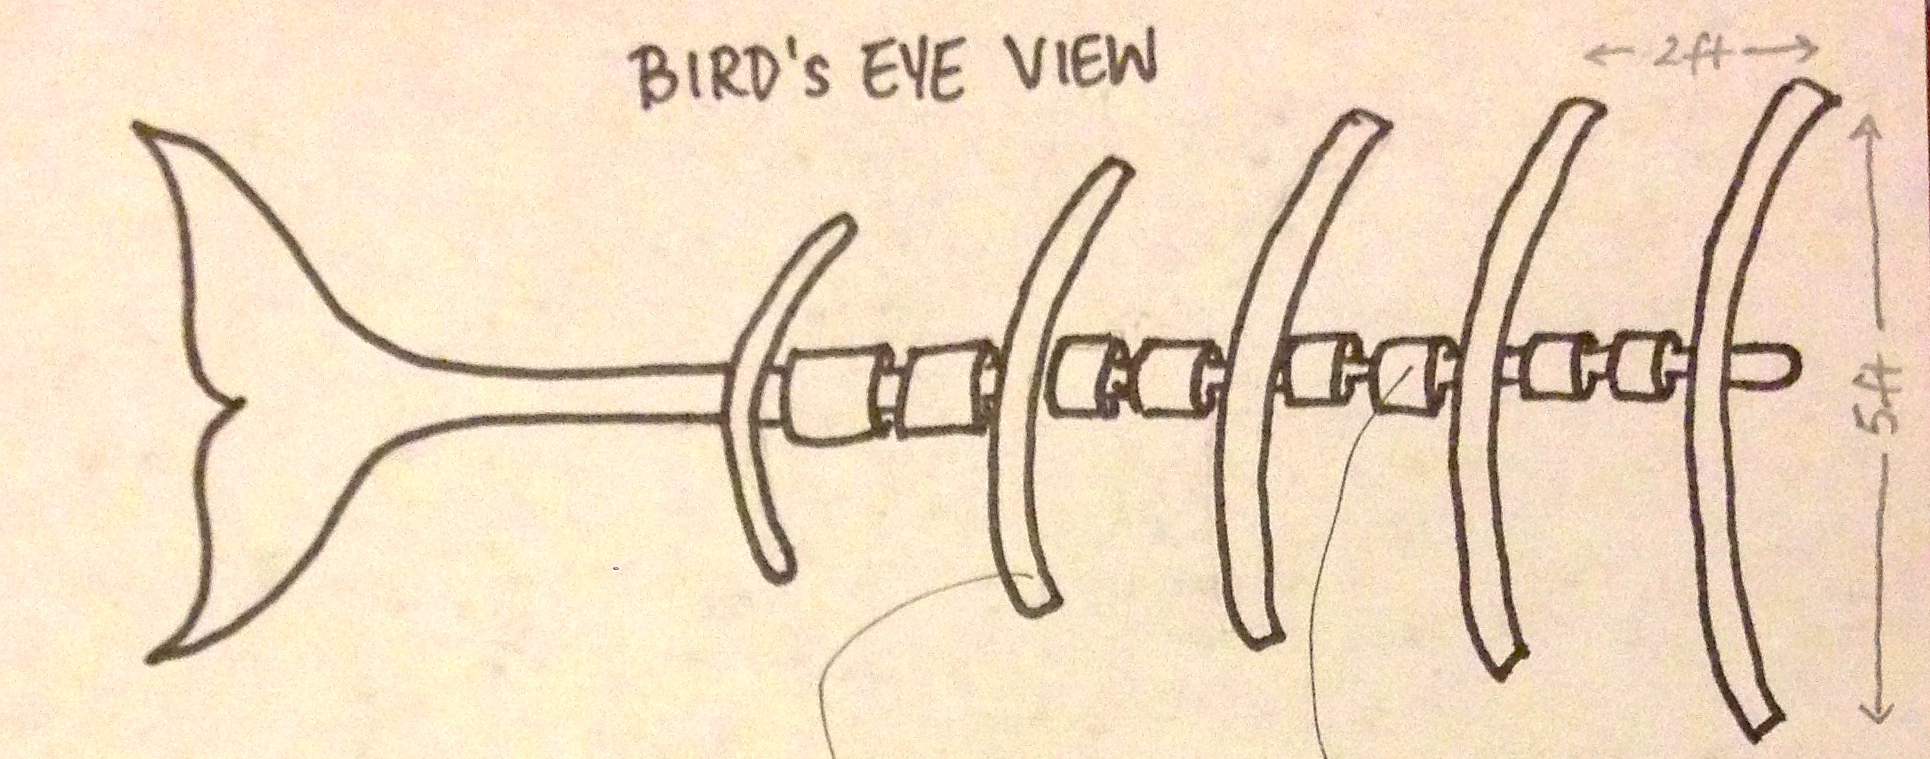 BIRD's EYE VIEW
2ft
5ft